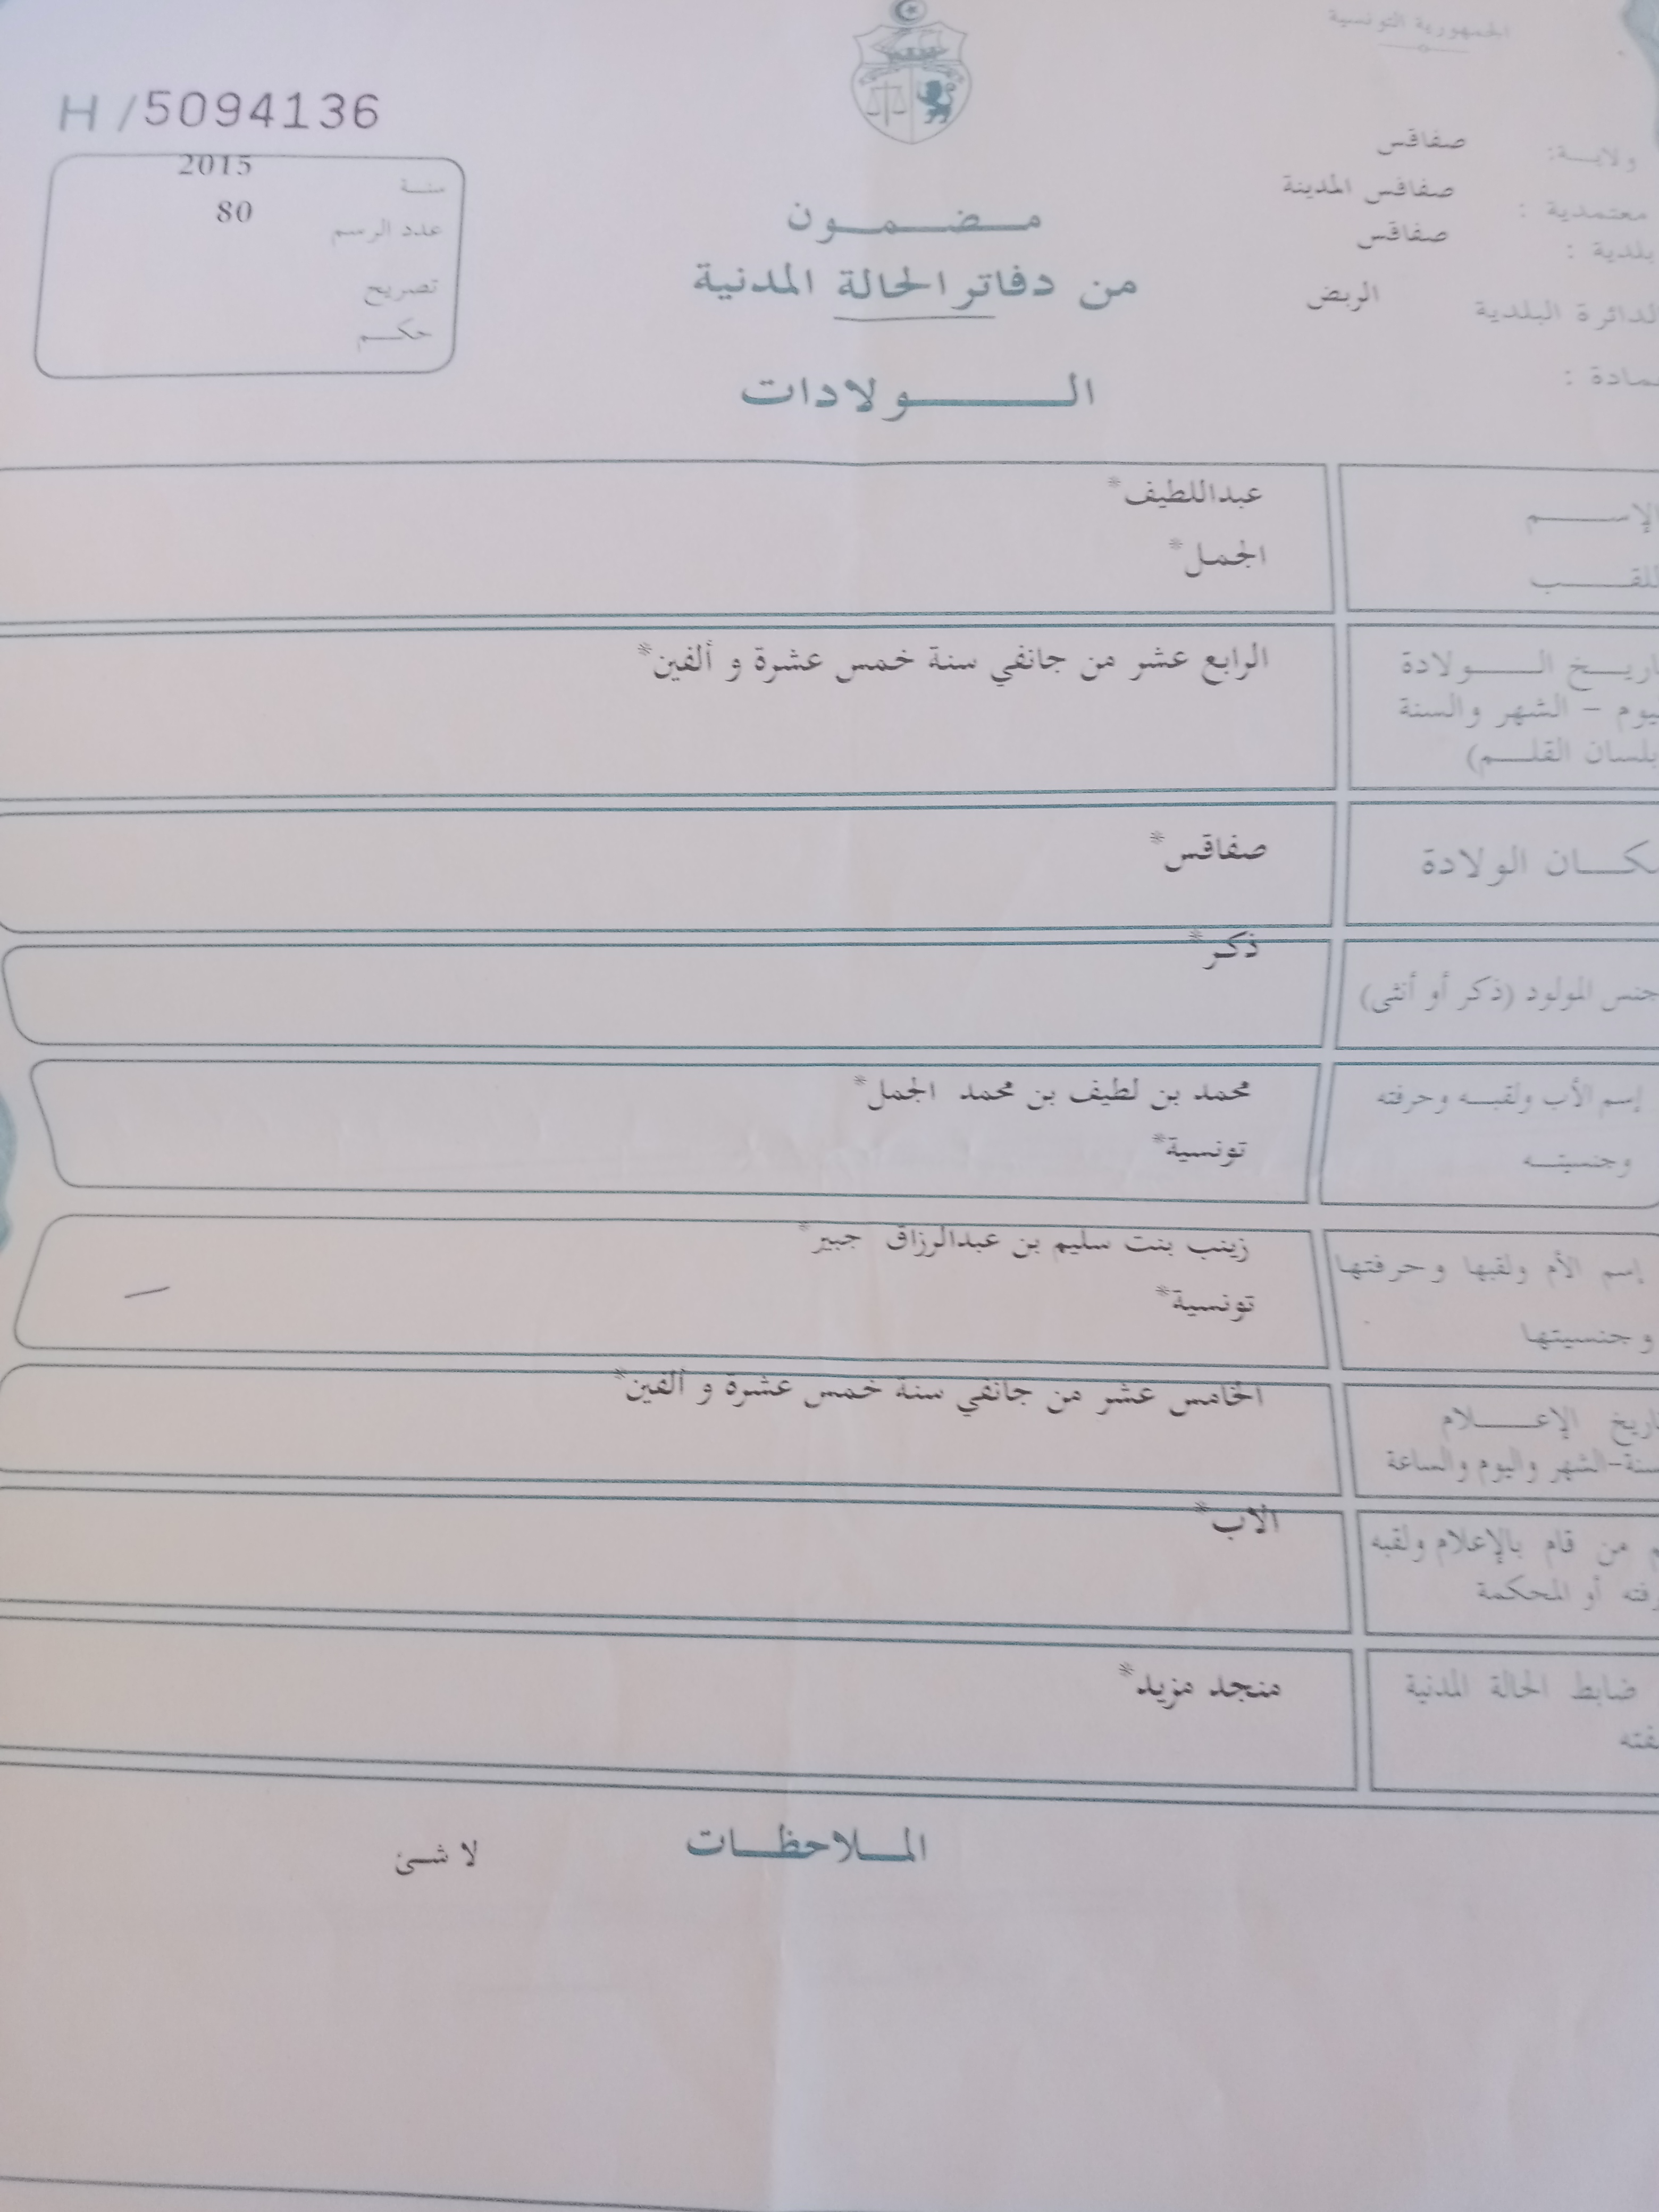 الجمهورية التونسية
H/5094136
ولايـــة: صفاقس
معتمدية : صفاقس المدينة
بلدية : صفاقس
الدائرة البلدية الربض
مادة :
سنـــة 2015
عدد الرسم 80
تصريح
حكـــم
مـــضـــمـــون
من دفاتر الحالة المدنية
الـــولادات
الإســـم عبداللطيف*
للقـــب الجمل*
اريـــخ الـــولادة الرابع عشر من جانفي سنة خمس عشرة و ألفين*
يوم - الشهر والسنة
بلسان القلـــم)
كـــان الولادة صفاقس*
جنس المولود (ذكر أو أنثى) ذكر*
إسم الأب ولقبـــه وحرفته محمد بن لطيف بن محمد الجمل*
وجنسيتـــه تونسية*
إسم الأم ولقبها وحرفتها زينب بنت سليم بن عبدالرزاق جبير*
وجنسيتها تونسية*
اريخ الإعـــلام الخامس عشر من جانفي سنة خمس عشرة و ألفين*
سنة-الشهر واليوم والساعة
م من قام بالإعلام ولقبه الاب*
رفته أو المحكمة
ضابط الحالة المدنية منجد مزيد*
فته
المـــلاحظـــات
لا شئ